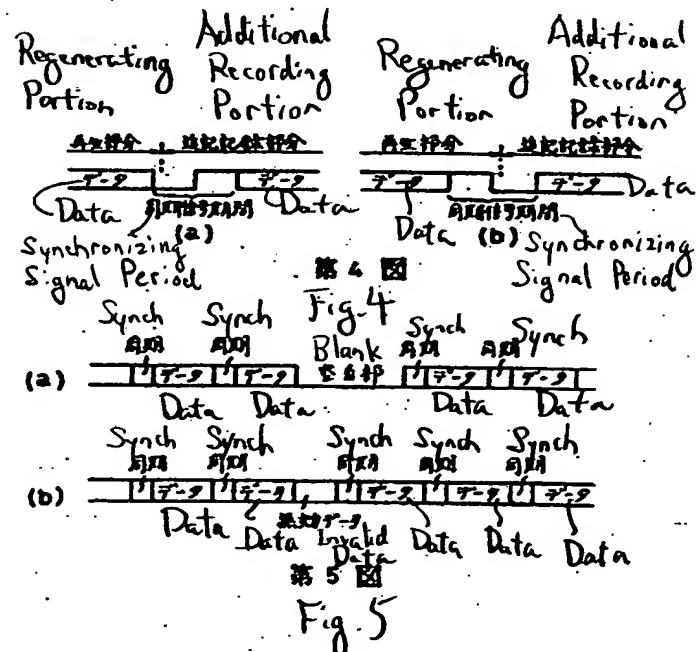 Regenerating Portion
Additional Recording Portion
Regenerating Portion
Additional Recording Portion
再生部分 追記記録部分 再生部分 追記記録部分
データ データ データ データ
Data Data Data Data
同期信号期間 同期信号期間
(a) (b)
Synchronizing Signal Period
Synchronizing Signal Period
第 4 図
Fig. 4
Synch Synch Blank Synch Synch
同期 同期 空白部 同期 同期
(a) データ データ データ データ
Data Data Data Data
Synch Synch Synch Synch Synch
同期 同期 同期 同期 同期
(b) データ データ データ データ データ
Data Data Invalid Data Data Data Data
データ
第 5 図
Fig. 5